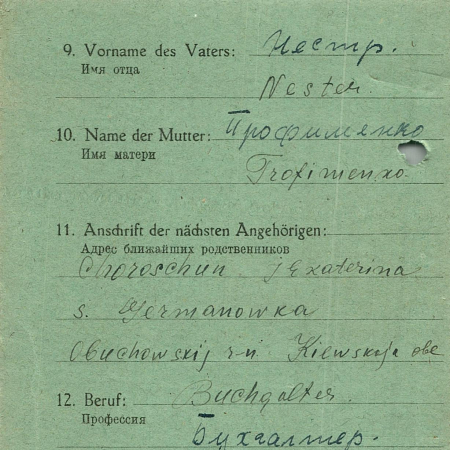 9. Vorname des Vaters: Нестр.
Имя отца
Nester.
10. Name der Mutter: Трофименко
Имя матери
Trofimenko.
11. Anschrift der nächsten Angehörigen:
Адрес ближайших родственников
Choroschun Jekaterina
s. Germanowka
Obuchowskij r-n Kiewskaja obl
12. Beruf: Buchgalter.
Профессия
Бухгалтер.